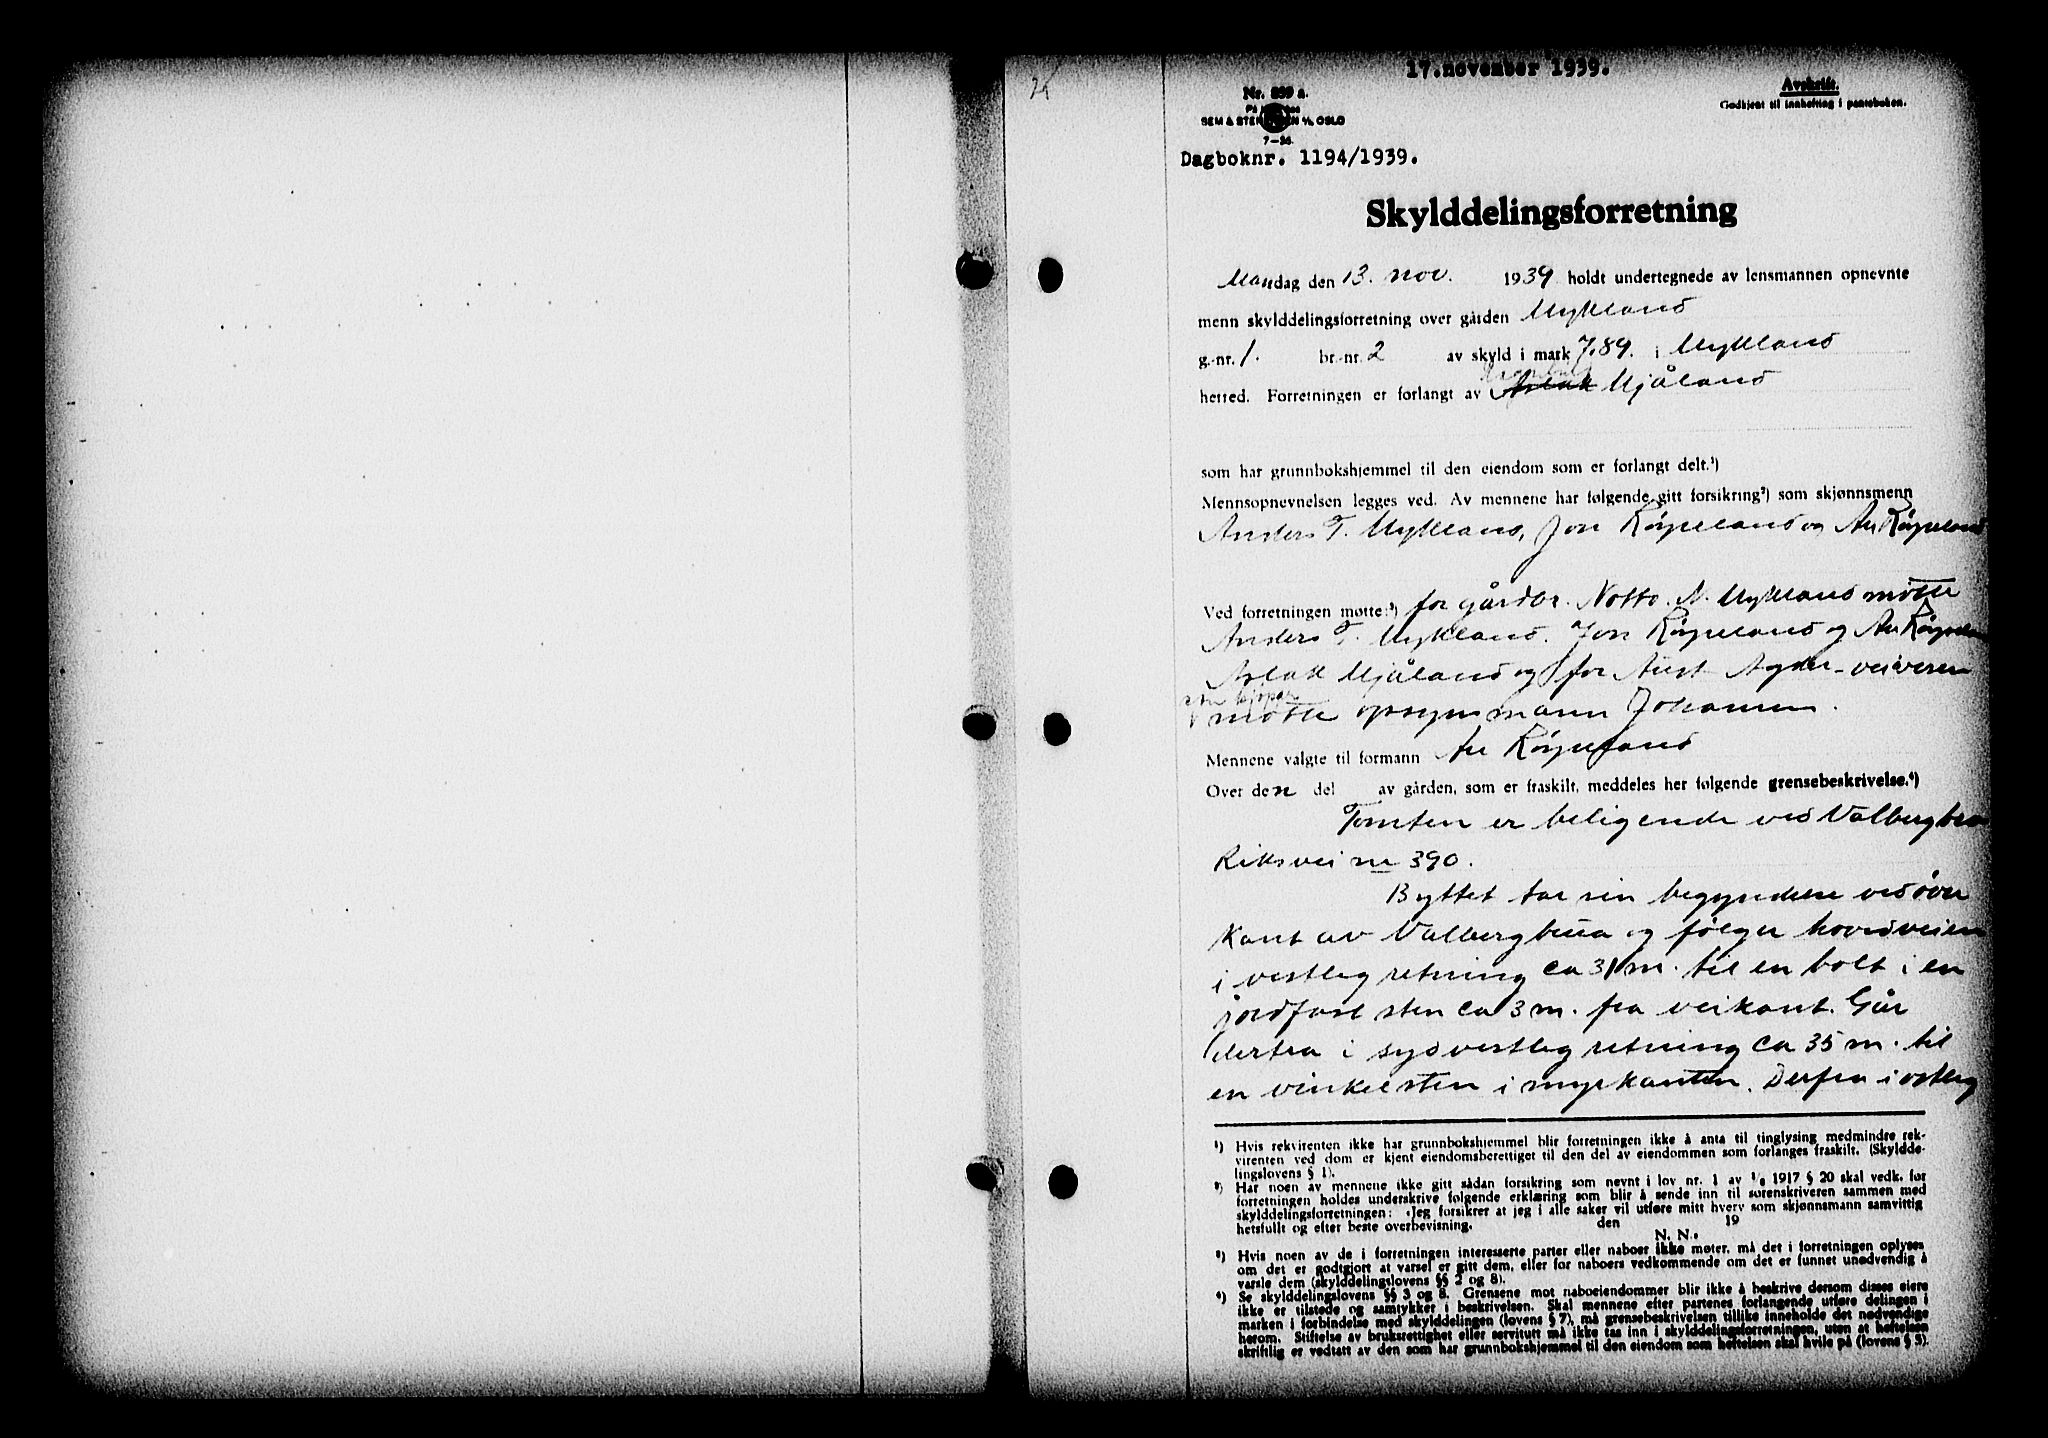 17.november 1939.
Avskrift.
Nr. 899 a.
Godkjent til innhefting i panteboken.
SEM & STENERSEN A/S OSLO
7-36.
Dagboknr. 1194/1939.
Skylddelingsforretning
Mandag den 13. nov. 1939 holdt undertegnede av lensmannen opnevnte
menn skylddelingsforretning over gården Mykland
g.-nr. 1. br.-nr. 2 av skyld i mark 7.89. i Mykland
herred. Forretningen er forlangt av Aslak Mjåland
som har grunnbokshjemmel til den eiendom som er forlangt delt.¹)
Mennsopnevnelsen legges ved. Av mennene har følgende gitt forsikring²) som skjønnsmenn
Anders T. Mykland, Jon Røyneland og An Røyneland
Ved forretningen møtte:³) for gårdbr. Notto. A. Mykland møtte
Anders T. Mykland. Jon Røyneland og An Røyneland
Aslak Mjåland og for Aust Agder veivesen
som kjøper
møtte opsynsmann Johansen.
Mennene valgte til formann An Røyneland
Over den del av gården, som er fraskilt, meddeles her følgende grensebeskrivelse.⁴)
Tomten er beligende ved Valbergbrua
Riksvei nr 390.
Byttet tar sin begyndelse ved øvre
kant av Valbergbrua og følger hovedveien
i vestleg retning ca 31 m. til en bolt i en
jordfast sten ca 3 m. fra veikant. Går
derfra i sydvestleg retning ca 35 m. til
en vinkelsten i myrkanten. Derfra i østleg
¹) Hvis rekvirenten ikke har grunnbokshjemmel blir forretningen ikke å anta til tinglysing medmindre rek-
virenten ved dom er kjent eiendomsberettiget til den del av eiendommen som forlanges fraskilt. (Skyldde-
lingslovens § 1).
²) Har noen av mennene ikke gitt sådan forsikring som nevnt i lov nr. 1 av 1/6 1917 § 20 skal vedk. før
forretningen holdes underskrive følgende erklæring som blir å sende inn til sorenskriveren sammen med
skylddelingsforretningen: «Jeg forsikrer at jeg i alle saker vil utføre mitt hverv som skjønnsmann samvittig
hetsfullt og efter beste overbevisning. den 19
N. N.»
³) Hvis noen av de i forretningen interesserte parter eller naboer ikke møter, må det i forretningen oplyses
om det er godtgjort at varsel er gitt dem, eller for naboers vedkommende om det er funnet unødvendig å
varsle dem (skylddelingslovens §§ 2 og 8).
⁴) Se skylddelingslovens §§ 3 og 8. Grensene mot naboeiendommer blir ikke å beskrive dersom disses eiere
ikke er tilstede og samtykker i beskrivelsen. Skal mennene efter partenes forlangende utføre delingen i
marken i forbindelse med skylddelingen (lovens § 7), må grensebeskrivelsen tillike inneholde det nødvendige
herom. Stiftelse av bruksrettighet eller servitutt må ikke tas inn i skylddelingsforretningen, uten at heftelsen
skriftlig er vedtatt av den som har grunnbokshjemmel til den eiendom som heftelsen skal hvile på (lovens § 5).